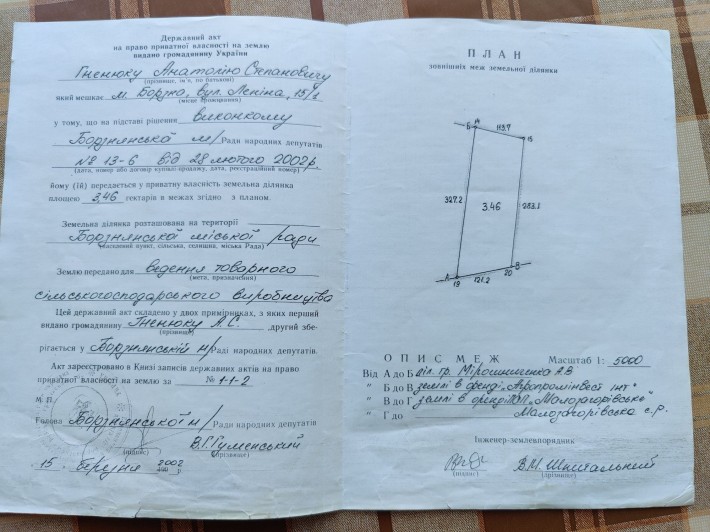 Державний акт
на право приватної власності на землю
видано громадянину України
Гненюку Анатолію Степановичу
(прізвище, ім'я, по батькові)
який мешкає м. Борзна, вул. Леніна, 15/1
(місце проживання)
у тому, що на підставі рішення виконкому
Борзнянської м/Ради народних депутатів
№ 13-6 від 28 лютого 2002 р.
(дата, номер або договір купівлі-продажу, дата, реєстраційний номер)
йому (їй) передається у приватну власність земельна ділянка
площею 3,46 гектарів в межах згідно з планом.
Земельна ділянка розташована на території
Борзнянської міської ради
(населений пункт, сільська, селищна, міська Рада)
Землю передано для ведення товарного
(мета, призначення)
сільськогосподарського виробництва
Цей державний акт складено у двох примірниках, з яких перший
видано громадянину Гненюку А.С. , другий збе-
(прізвище)
рігається у Борзнянській м/Раді народних депутатів.
Акт зареєстровано в Книзі записів державних актів на право
приватної власності на землю за № 1-1-2
М. П.
Голова Борзнянської м/Ради народних депутатів
В.Г. Гуменський
(підпис) (прізвище)
15 березня 2002 р
ПЛАН
зовнішніх меж земельної ділянки
Б 14
113.7
15
327.2
3.46
283.1
А 19
121.2
20 В
ОПИС МЕЖ Масштаб 1: 5000
Від А до Б діл. гр. Мірошниченка А.В
" Б до В землі в оренді „Агропромінвест інт"
" В до Г землі в оренді ПОП „Малозагорівське"
" Г до Малозагорівська с.р.
Інженер-землевпорядник
В.М. Шпитальний
(підпис) (прізвище)